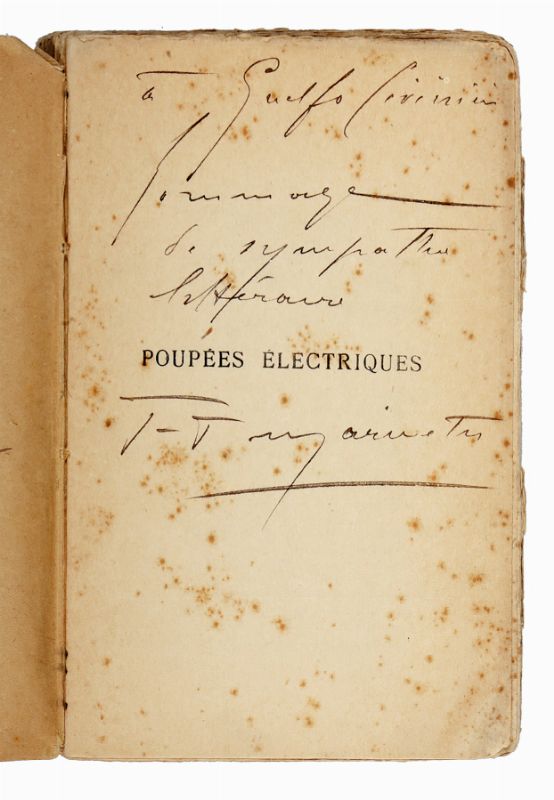 à Guelfo Civinini
hommage
de sympathie
littéraire
POUPÉES ÉLECTRIQUES
F-T Marinetti